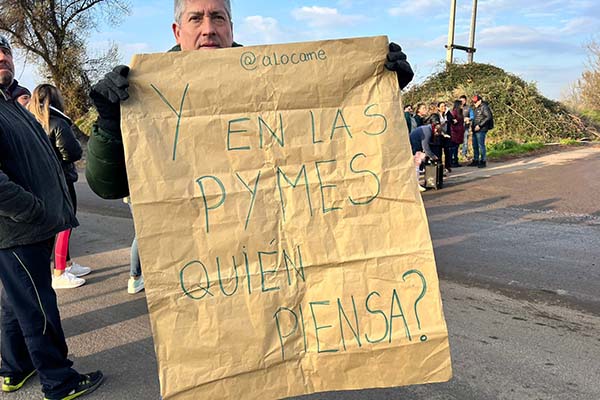 @aLocame
Y EN LAS
PYMES
QUIÉN
PIENSA?